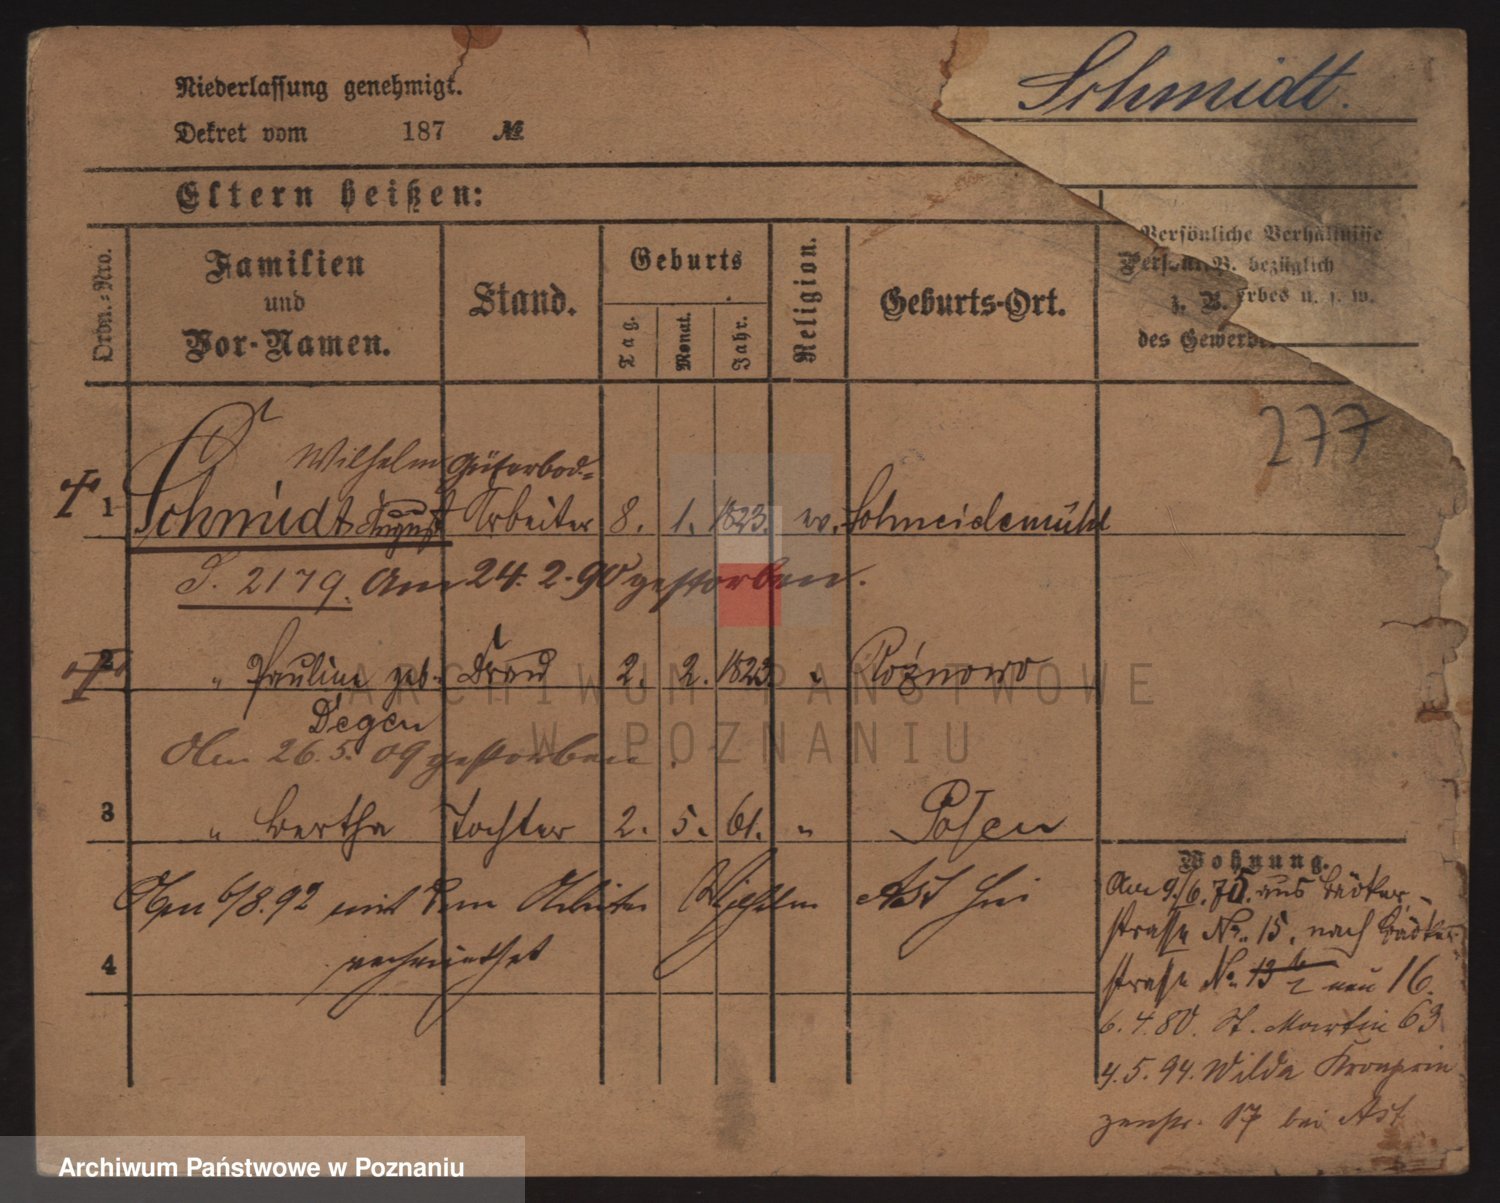 Schmidt.
Niederlassung genehmigt.
Dekret vom 187 №
Eltern heißen:
Ordn.-Nro.
Familien
und
Vor-Namen.
Stand.
Geburts
Tag.
Monat.
Jahr.
Religion.
Geburts-Ort.
Persönliche Verhältnisse
bezüglich
z. B.
Erbes u. s. w.
des Gewerbe
277
Wilhelm
1 Schmidt August Arbeiter 8. 1. 1823. ev. Schneidemühl
S. 2179. Am 24. 2. 90 gestorben.
2 " Pauline geb. Frau 2. 2. 1823. " Rożnowo
Degen
Am 26.5.09 gestorben.
3 " Bertha Tochter 2. 5. 61. " Posen
6/8.92 mit dem Arbeiter Wilhelm Ast hier
verheirathet
4
Wohnung.
Am 9./6. 75. aus Bäcker-
strasse No. 15. nach Bäcker
strasse No. 13 neu 16.
6. 4. 80. St. Martin 63
4. 5. 94. Wilda Kronprin
zenstr. 17 bei Ast
ARCHIWUM PAŃSTWOWE
W POZNANIU
Archiwum Państwowe w Poznaniu